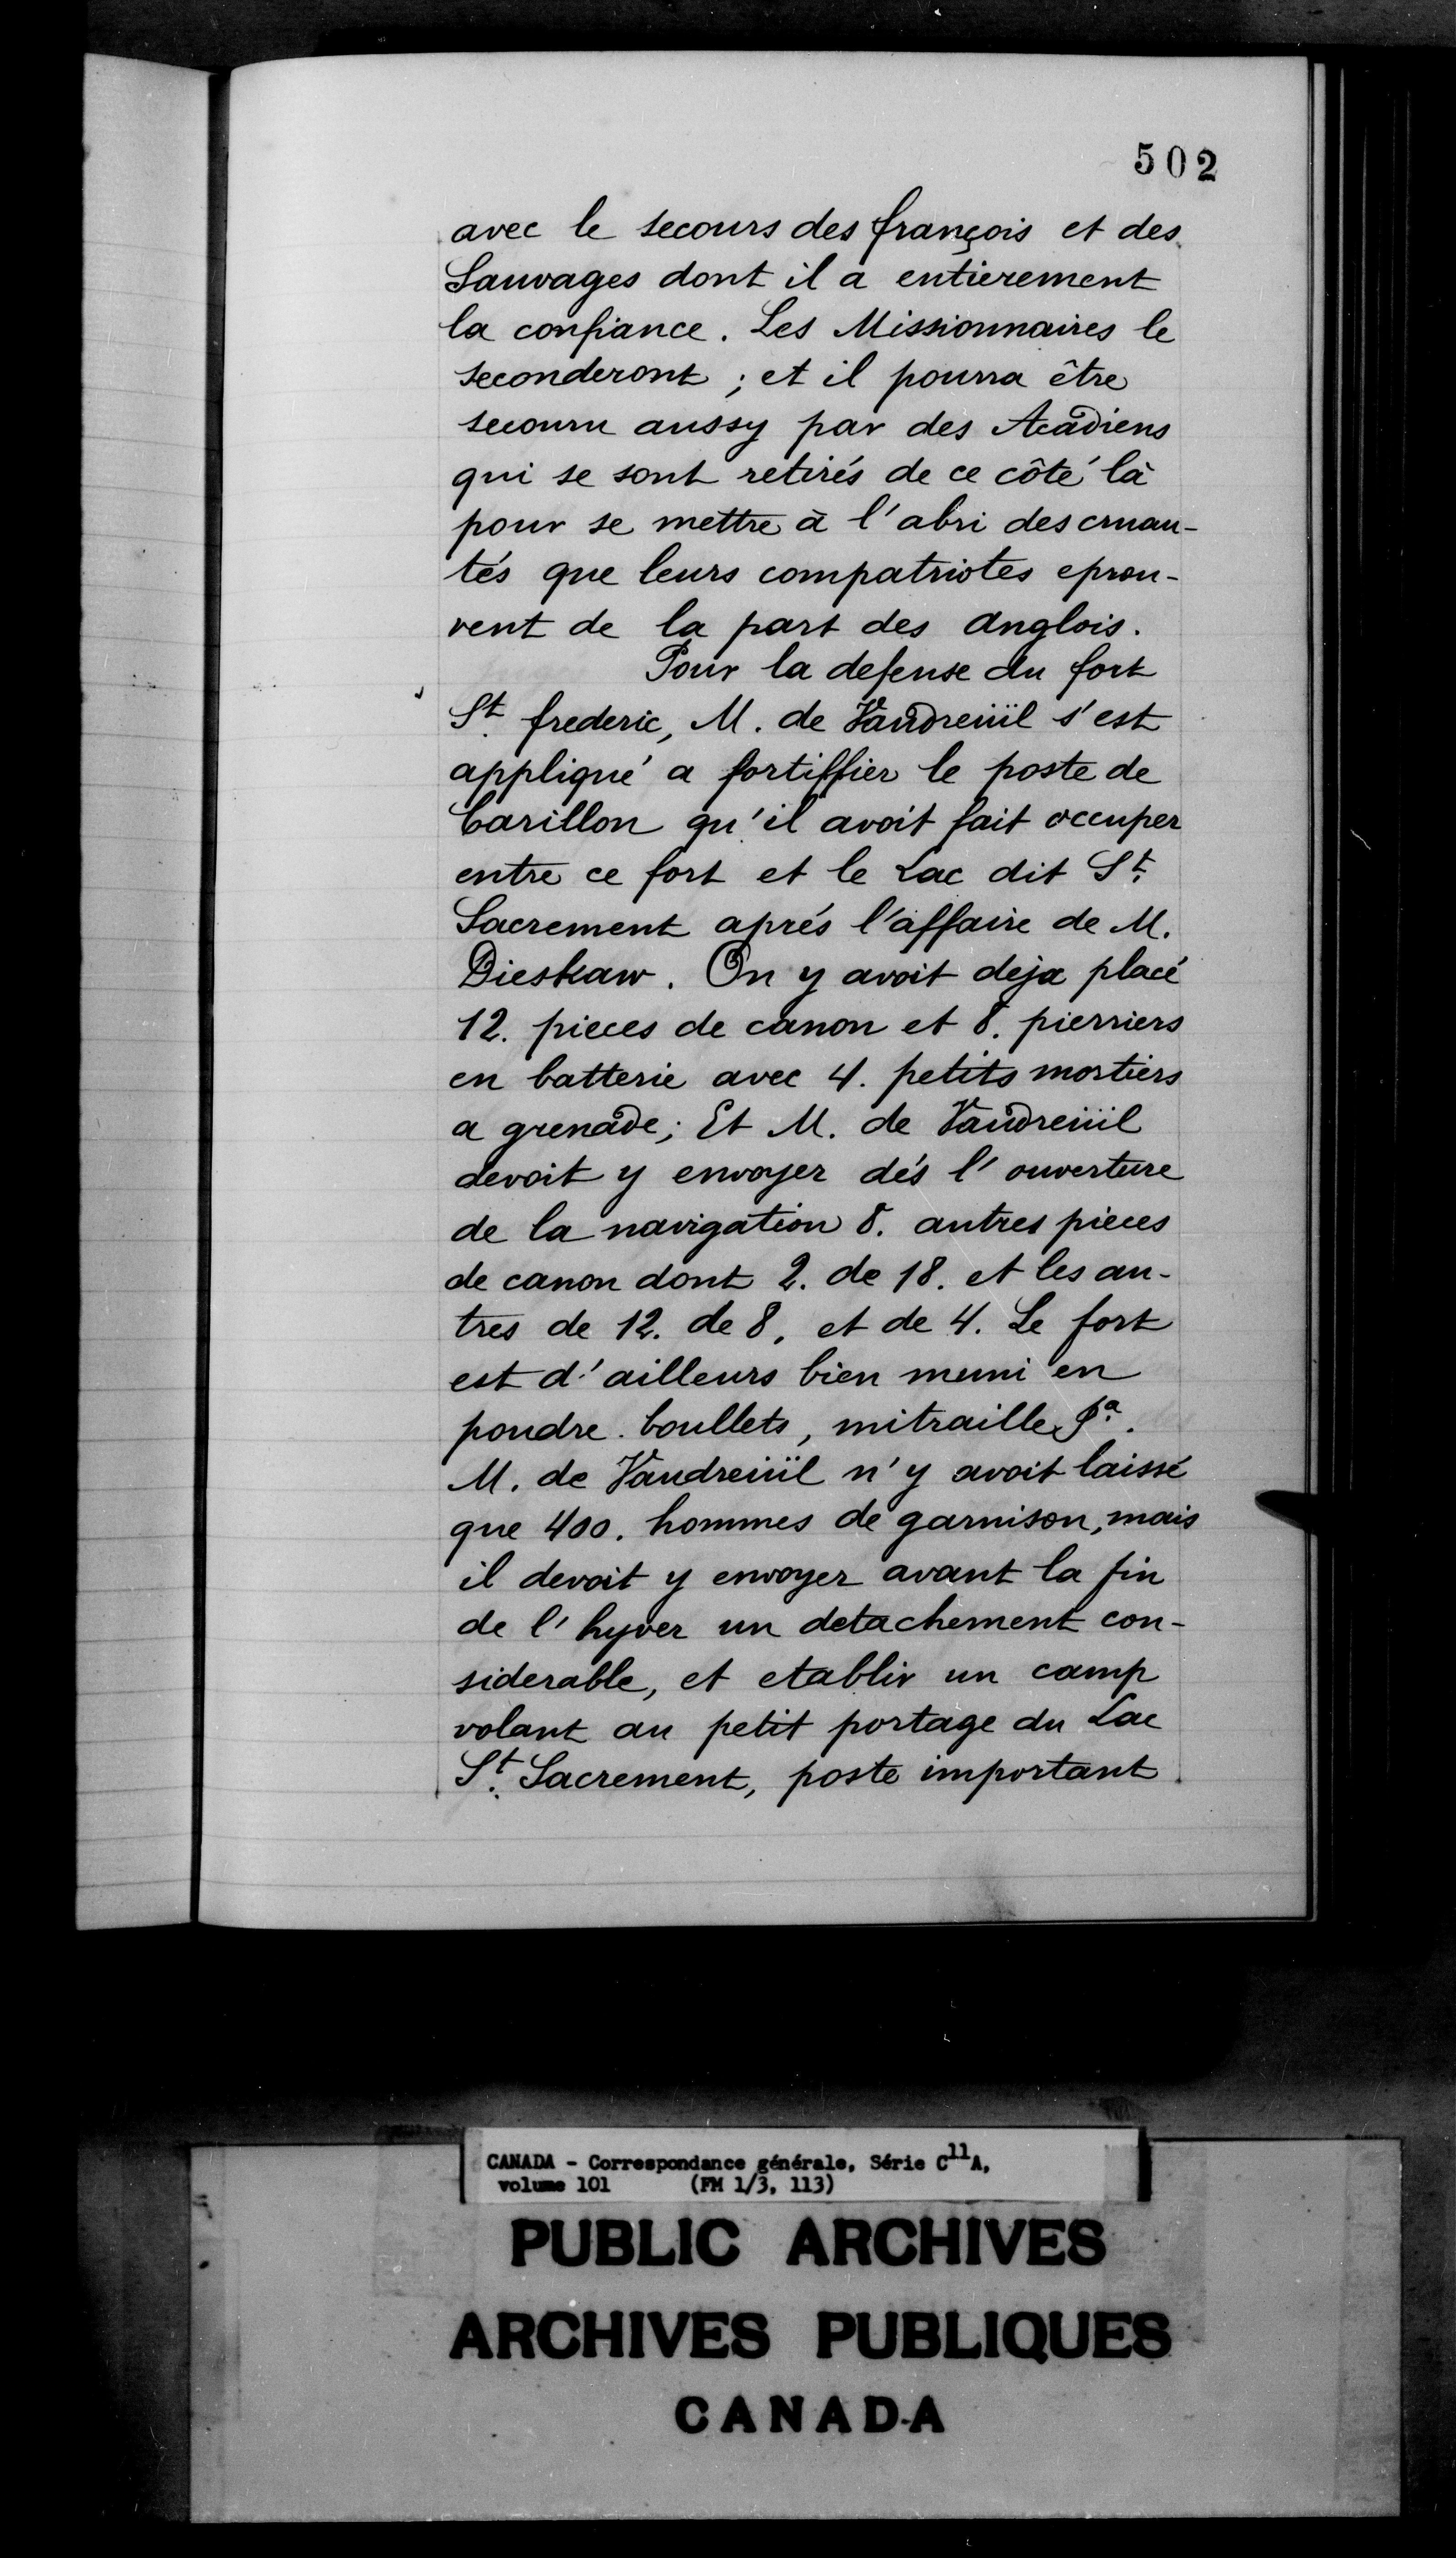 502
avec le secours des françois et des
Sauvages dont il a entierement
la confiance. Les Missionnaires le
seconderont ; et il pourra être
secouru aussy par des Acadiens
qui se sont retirés de ce côté là
pour se mettre à l'abri des cruau-
tés que leurs compatriotes eprou-
vent de la part des Anglois.
Pour la defense du fort
St. frederic, M. de Vaudreüil s'est
appliqué a fortiffier le poste de
Carillon qu'il avoit fait occuper
entre ce fort et le Lac dit St.
Sacrement aprés l'affaire de M.
Dieskaw. On y avoit deja placé
12. pieces de canon et 8. pierriers
en batterie avec 4. petits mortiers
a grenade ; Et M. de Vaudreüil
devoit y envoyer dés l'ouverture
de la navigation 8. autres pieces
de canon dont 2. de 18. et les au-
tres de 12. de 8. et de 4. Le fort
est d'ailleurs bien muni en
poudre. boullets, mitraille
M. de Vaudreüil n'y avoit laissé
que 400. hommes de garnison, mais
il devoit y envoyer avant la fin
de l'hyver un detachement con-
siderable, et etablir un camp
volant au petit portage du Lac
St. Sacrement, poste important
CANADA - Correspondance générale, Série C11A,
volume 101 (FM 1/3, 113)
PUBLIC ARCHIVES
ARCHIVES PUBLIQUES
CANADA